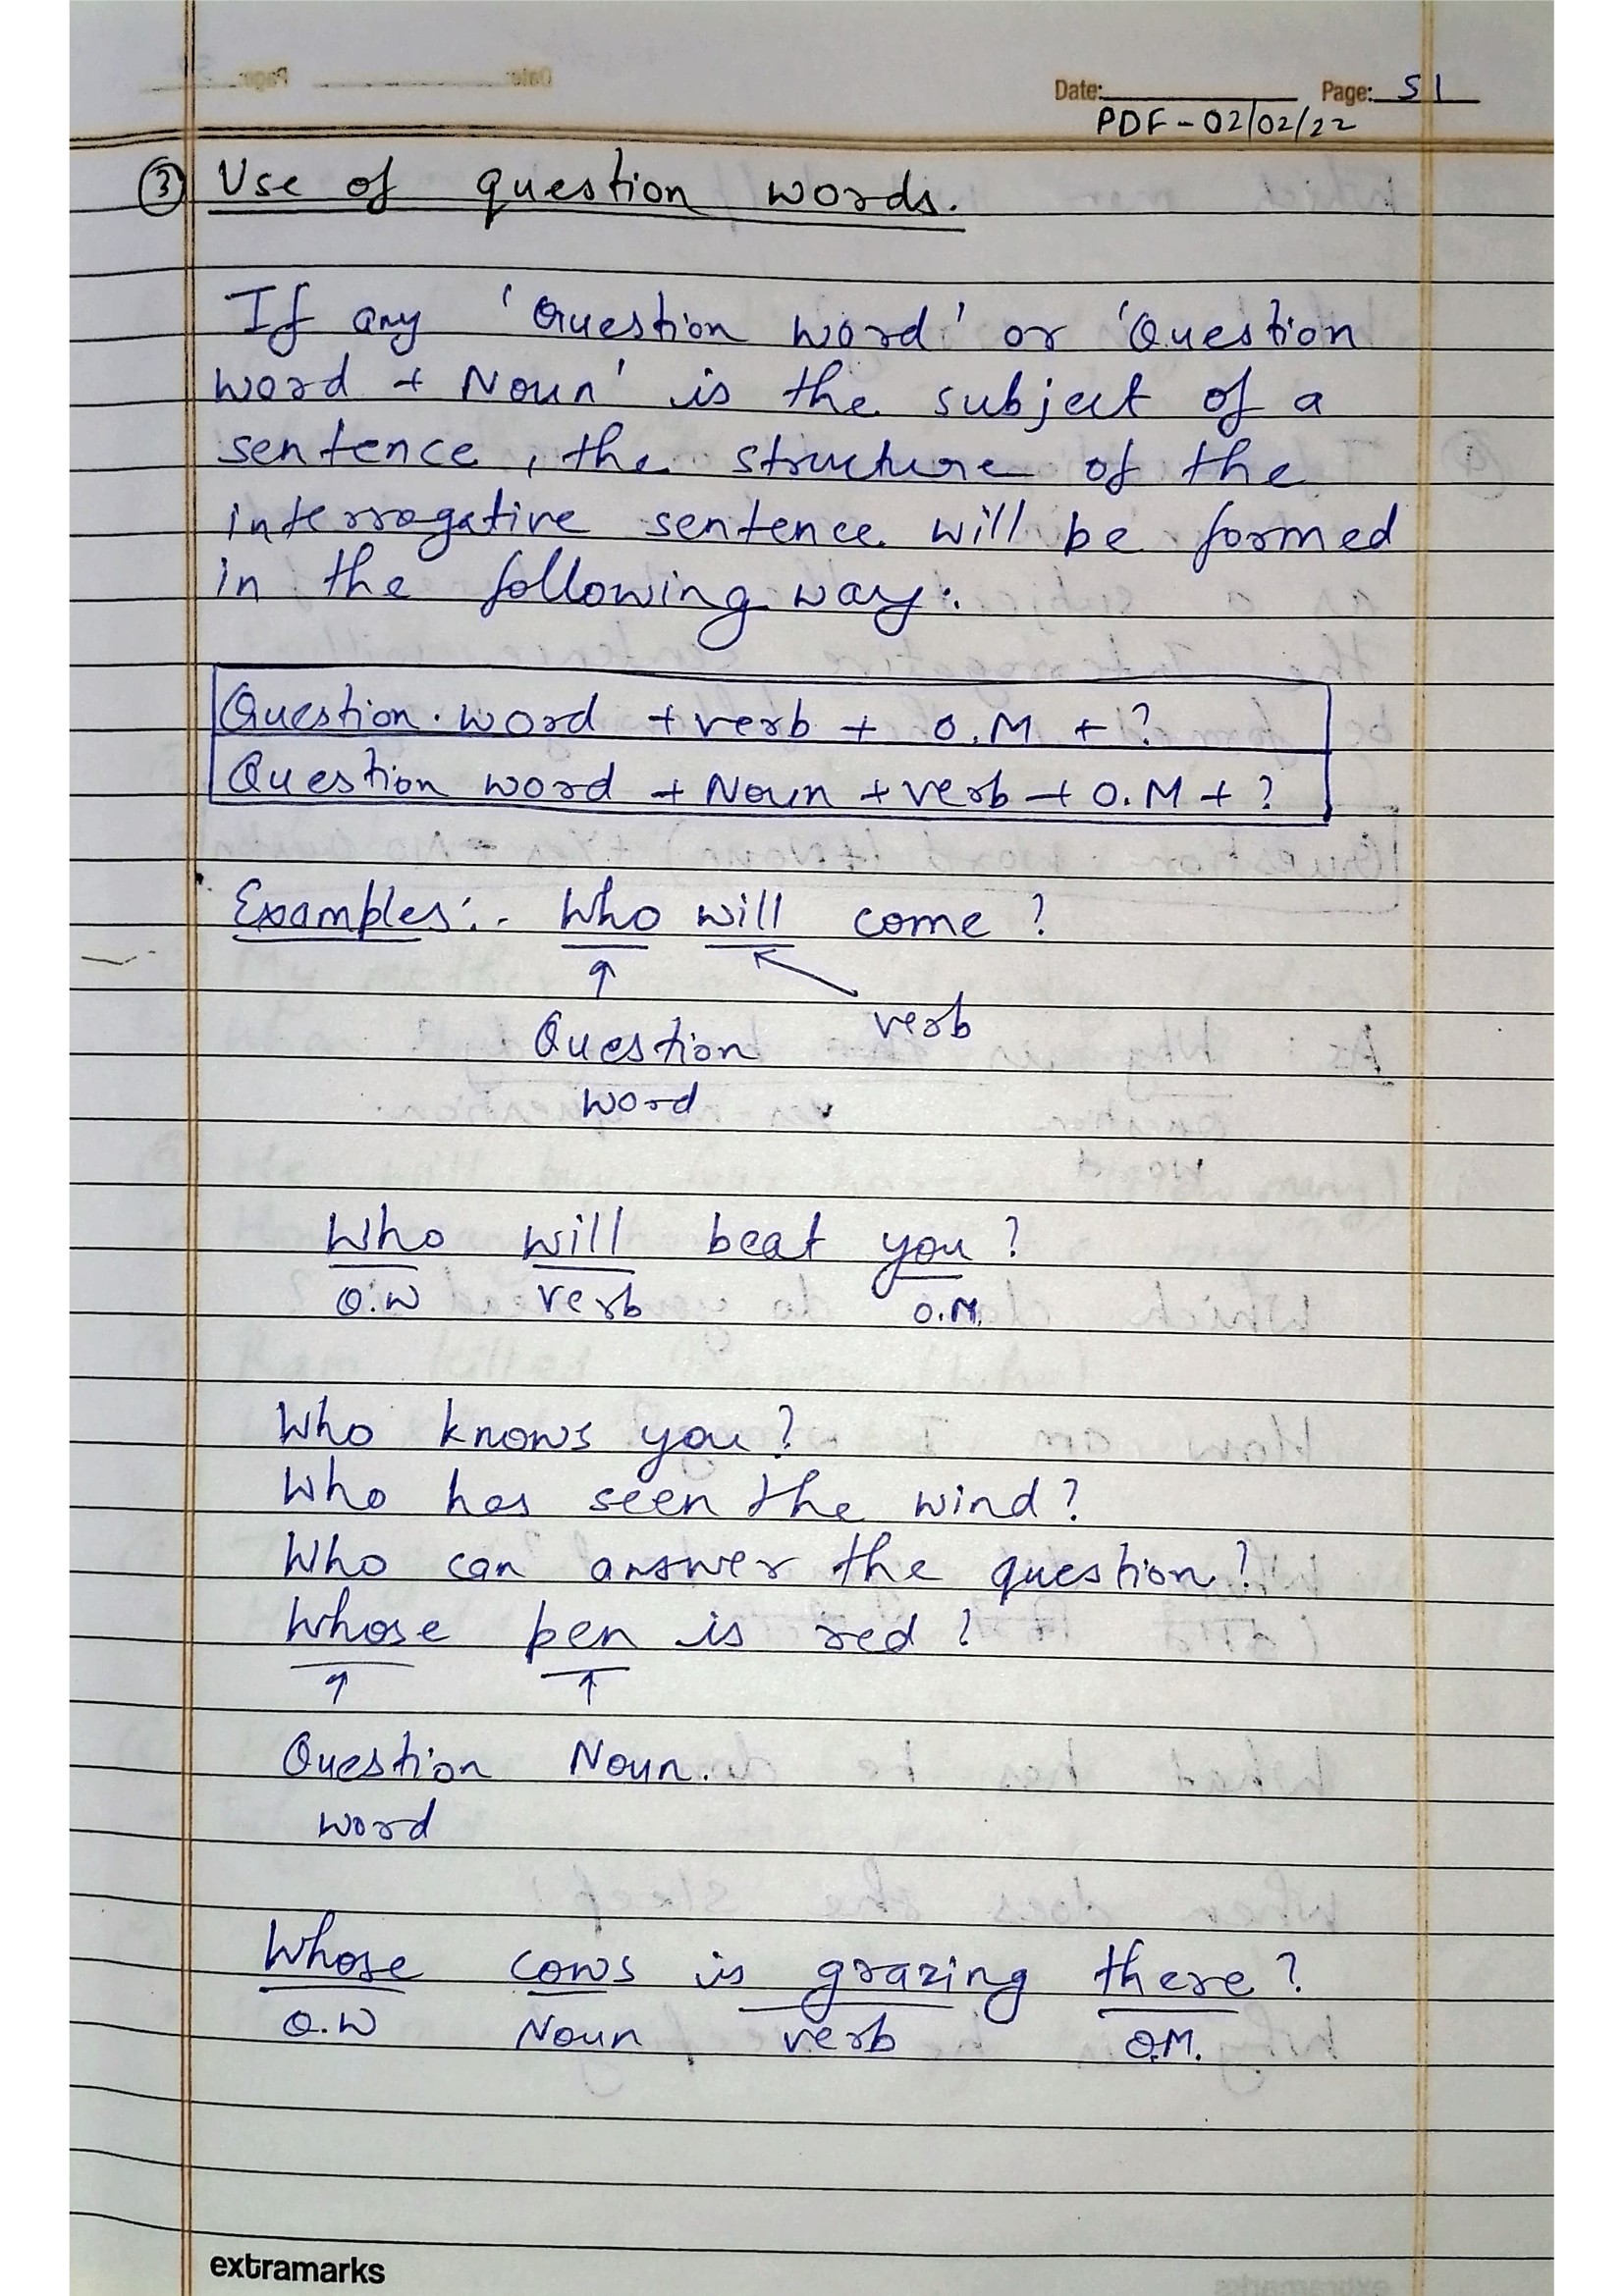 Date: Page: 51
PDF - 02/02/22
③ Use of question words.
If any 'Question word' or 'Question
word + Noun' is the subject of a
sentence, the structure of the
interrogative sentence will be formed
in the following way:
Question word + verb + O.M + ?
Question word + Noun + verb + O.M + ?
Examples:- Who will come ?
verb
Question
word
Who will beat you ?
Q.W verb O.M.
Who knows you ?
Who has seen the wind ?
Who can answer the question ?
Whose pen is red ?
Question Noun.
word
Whose cows is grazing there ?
Q.W Noun verb O.M.
extramarks